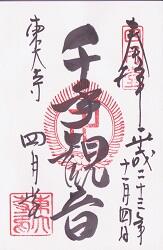 奉拝
平成二十三年
十一月四日
千手観音
東大寺
四月堂